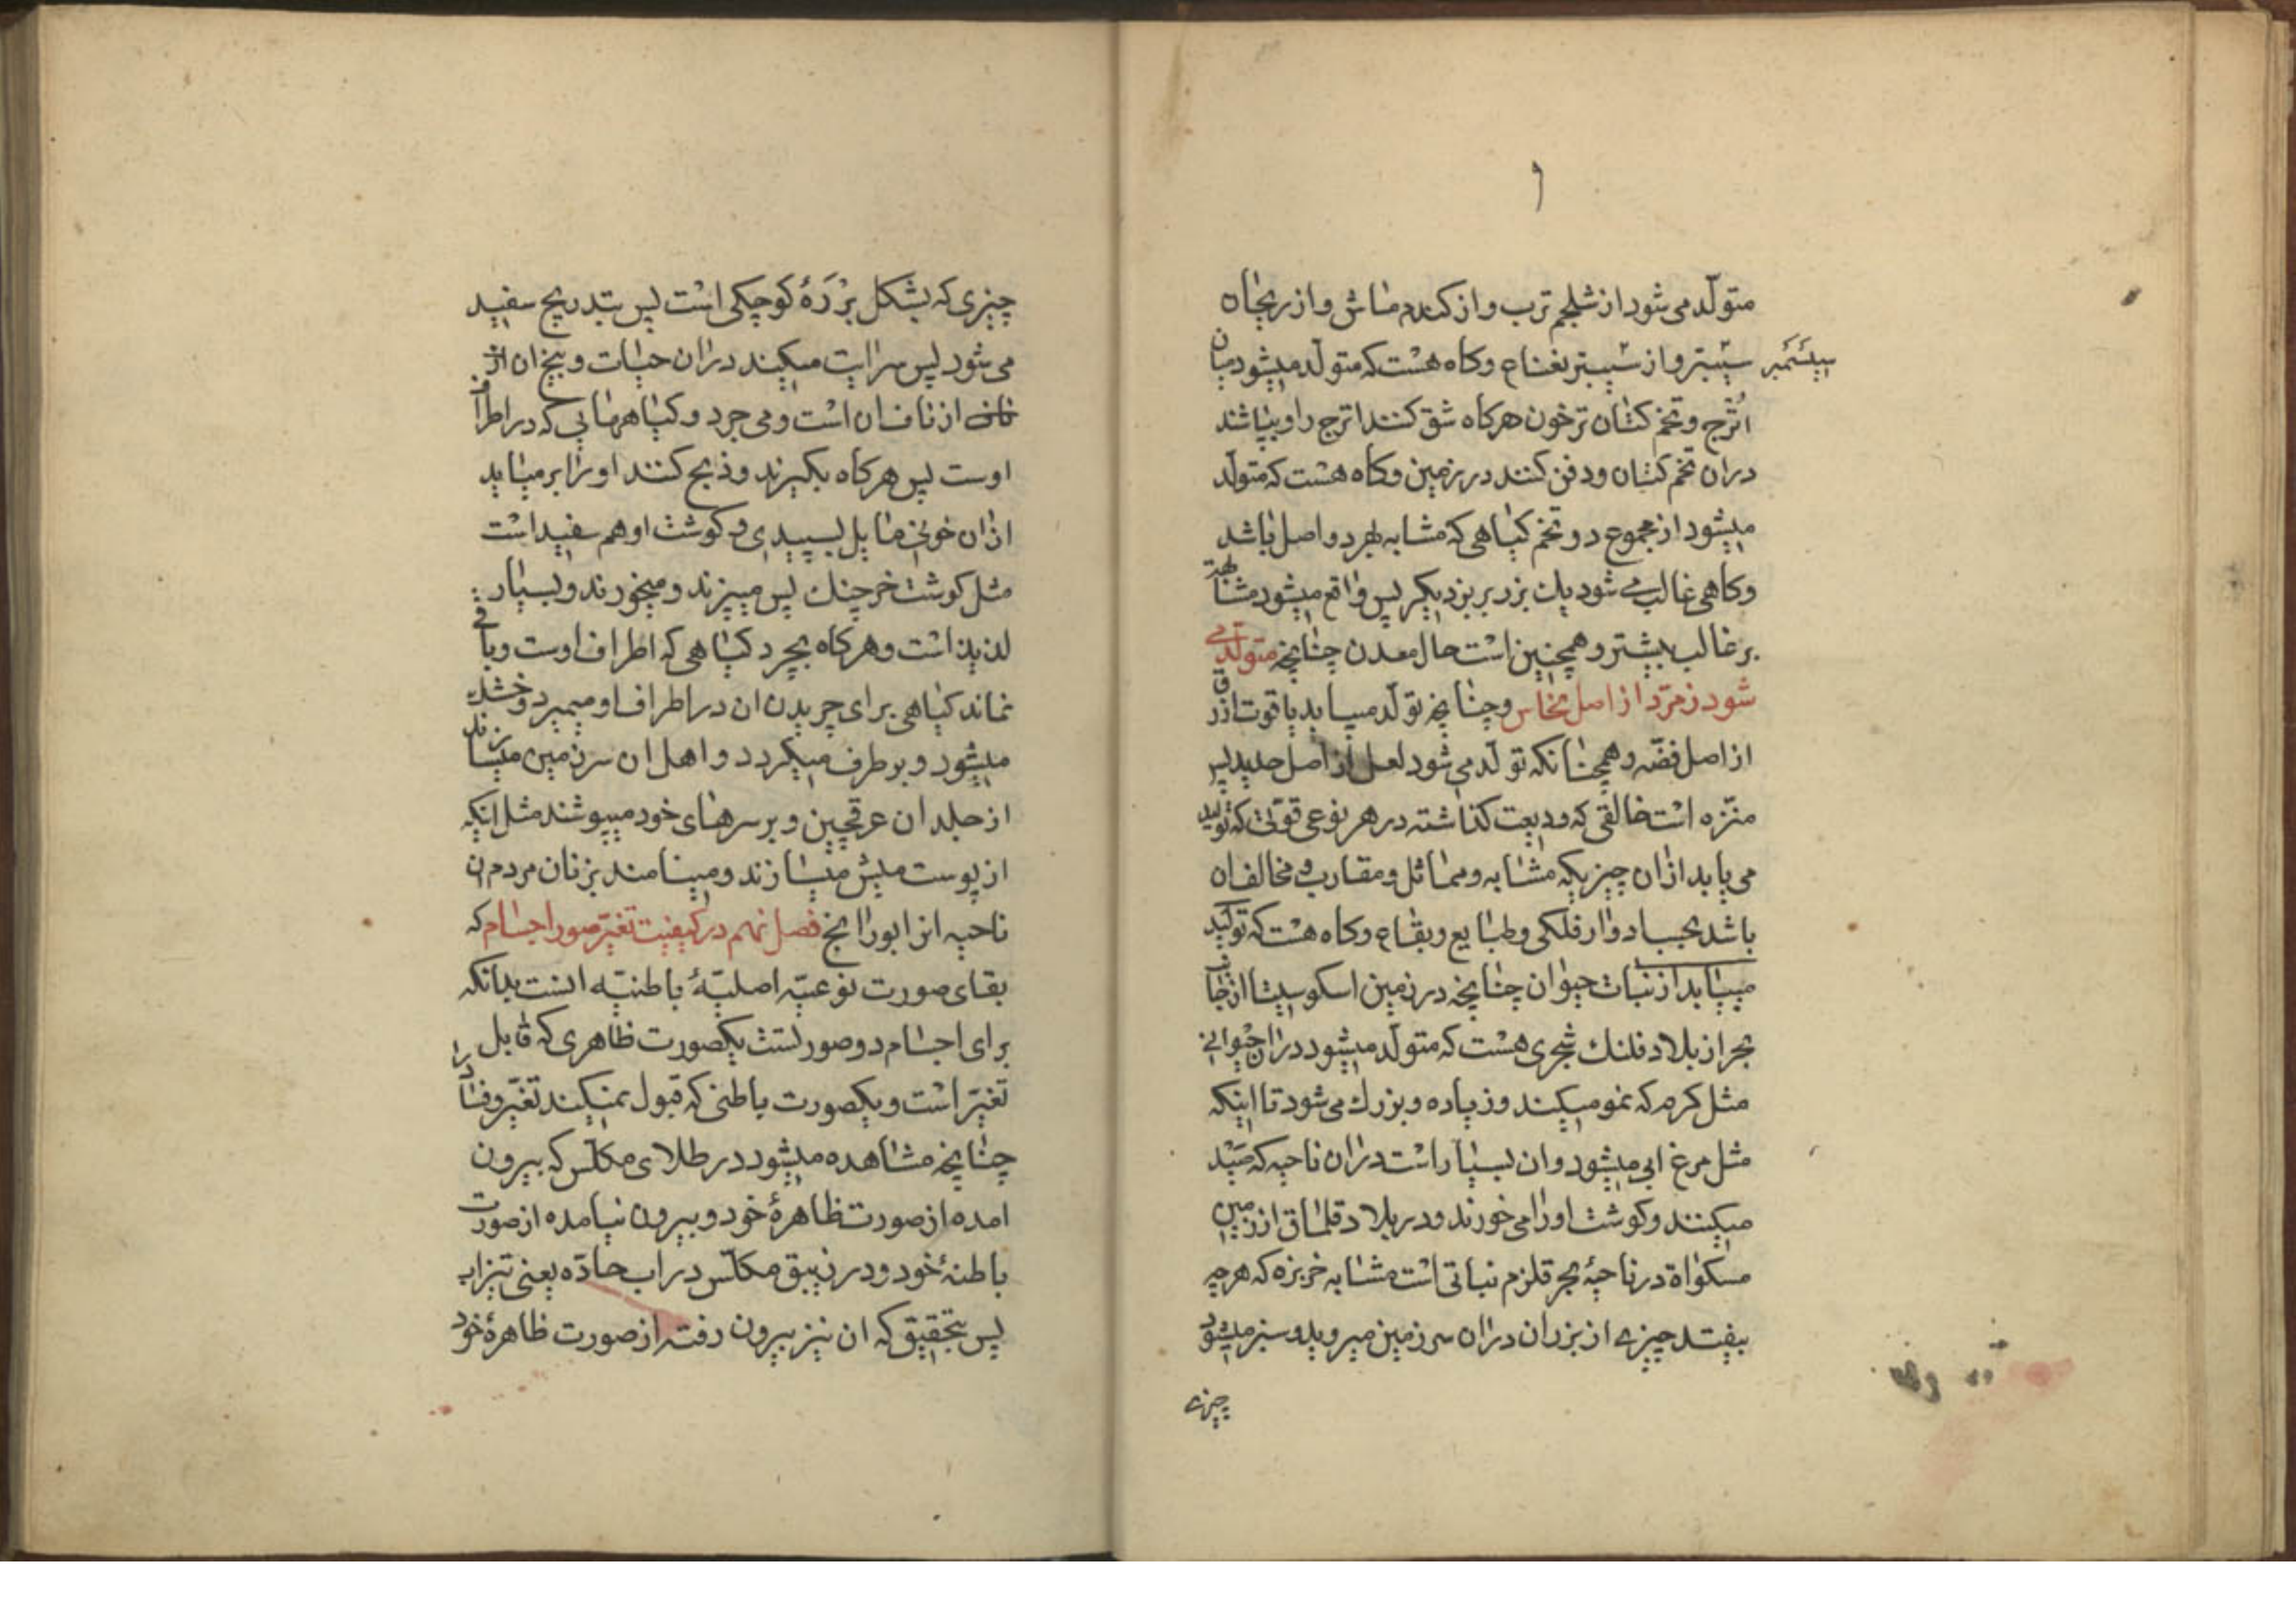 ۹
متولّد می شود از شلجم ترب و از کندم ماش و از ریحان
سیسنبر
سیسنبر و از سیسنبر نعناع و کاه هست که متولّد میشود میان
اترج و تخم کتان ترخون هرکاه شق کنند اترج را و بپاشند
دران تخم کتان و دفن کنند در زمین و کاه هست که متولّد
میشود از مجموع دو تخم کیاهی که مشابه بهر دو اصل باشد
و کاهی غالب می شود یک بزر بر بزر دیکر پس واقع میشود مشابهة
بر غالب بیشتر و همچنین است حال معدن چنانچه متولّد می
شود زمرّد از اصل نحاس و چنانچه تولّد مییابد یاقوت ازرق
از اصل فضّه و همچنانکه تولّد می شود لعل از اصل حدید پس
منزّه است خالقی که ودیعت کذاشته در هر نوعی قوّتی که تولید
می یابد ازان چیزیکه مشابه و مماثل و مقارب و مخالف ان
باشد بحسب ادوار فلکی و طبایع و بقاع و کاه هست که تولید
مییابد از نبات حیوان چنانچه در زمین اسکوسیا از
بحر از بلاد فلنک شجری هست که متولّد میشود دران حیوانی
مثل کرم که نمو میکند و زیاده و بزرك می شود تا اینکه
مثل مرغ ابی میشود و ان بسیار است دران ناحیه که صید
میکنند و کوشت او را می خورند و در بلاد قلماق از زمین
مسکواة در ناحیهٔ بحر قلزم نباتی است مشابه خربزه که هر چه
بیفتد چیزی از بزران دران سرزمین میروید و سبز میشود
چیزی
چیزی که بشکل برّهٔ کوچکی است پس بتدریج سفید
می شود پس سرایت میکند دران حیات و بیخ ان از
از ناف ان است و می چرد و کیاهرهایی که در اطراف
اوست پس هرکاه بکیرند و ذبح کنند او را بر میاید
ازان خونی مایل بسپیدی و کوشت او هم سفید است
مثل کوشت خرچنك پس میپزند و میخورند و بسیار
لذیذ است و هرکاه بچرد کیاهی که اطراف اوست و باقی
نماند کیاهی برای چریدن ان در اطراف او میمیرد و خشك
میشود و برطرف میکردد و اهل ان سرزمین میسازند
از جلد ان عرقچین و بر سرهای خود میپوشند مثل انکه
از پوست میش میسازند و مینامند بزنان مردم ان
ناحیه انرا بورانج فصل نهم در کیفیت تغیّر صور اجسام که
بقای صورت نوعیّه اصلیّهٔ باطنیّه است بدانکه
برای اجسام دو صورتست یکصورت ظاهری که قابل
تغیّر است و یکصورت باطنی که قبول نمیکند تغیّر و فساد را
چنانچه مشاهده میشود در طلای مکلّس که بیرون
امده از صورت ظاهرهٔ خود و بیرون نیامده از صورت
باطنهٔ خود و در زیبق مکلّس در اب حادّه یعنی تیزاب
پس بتحقیق که ان نیز بیرون رفته از صورت ظاهرهٔ خود